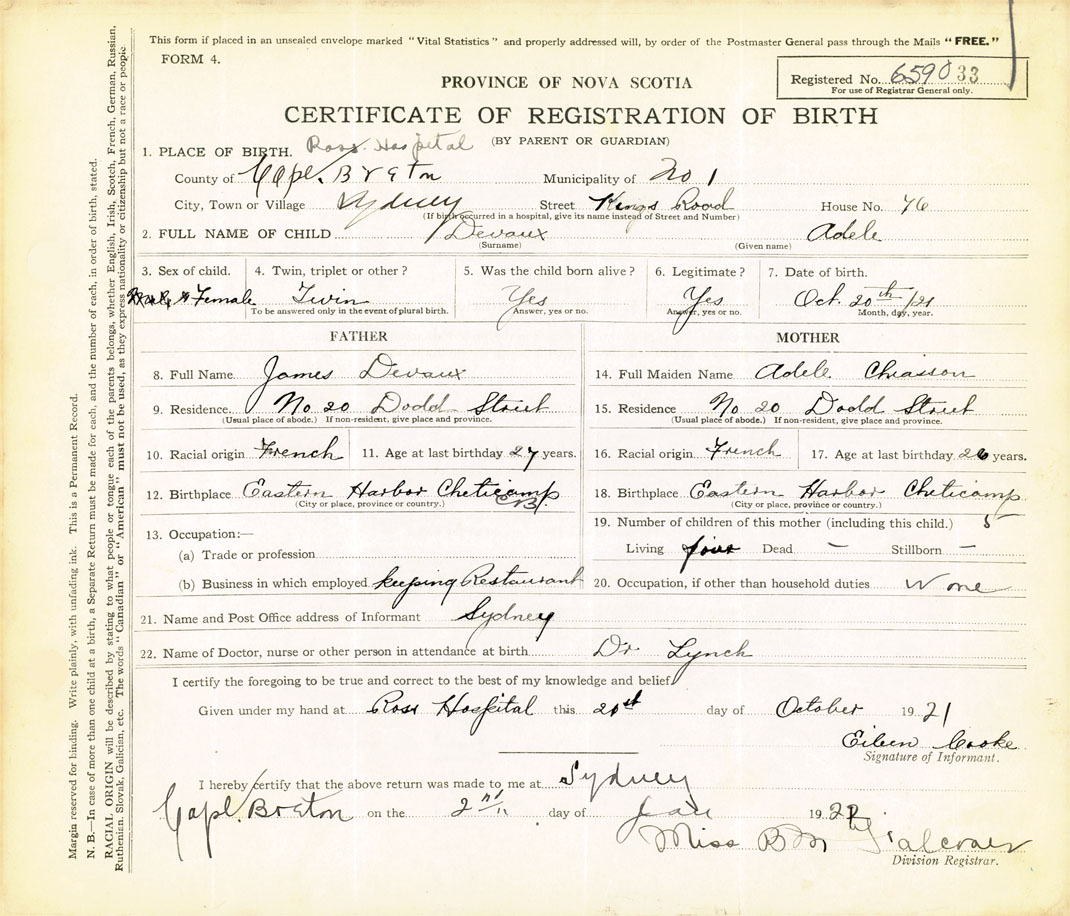 This form if placed in an unsealed envelope marked "Vital Statistics" and properly addressed will, by order of the Postmaster General pass through the Mails "FREE."
FORM 4.
Registered No. 6590 33
For use of Registrar General only.
PROVINCE OF NOVA SCOTIA
CERTIFICATE OF REGISTRATION OF BIRTH
(BY PARENT OR GUARDIAN)
1. PLACE OF BIRTH. Ross Hospital
County of Cape Breton Municipality of No 1
City, Town or Village Sydney Street Kings Road House No. 76
(If birth occurred in a hospital, give its name instead of Street and Number)
2. FULL NAME OF CHILD Devaux Adele
(Surname) (Given name)
3. Sex of child. 4. Twin, triplet or other? 5. Was the child born alive? 6. Legitimate? 7. Date of birth.
Female Twin Yes Yes Oct. 20th/21
To be answered only in the event of plural birth. Answer, yes or no. Answer, yes or no. Month, day, year.
FATHER
8. Full Name James Devaux
9. Residence No 20 Dodd Street
(Usual place of abode.) If non-resident, give place and province.
10. Racial origin French 11. Age at last birthday 27 years.
12. Birthplace Eastern Harbor Cheticamp C.B.
(City or place, province or country.)
13. Occupation:—
(a) Trade or profession
(b) Business in which employed keeping Restaurant
MOTHER
14. Full Maiden Name Adele Chiasson
15. Residence No 20 Dodd Street
(Usual place of abode.) If non-resident, give place and province.
16. Racial origin French 17. Age at last birthday 26 years.
18. Birthplace Eastern Harbor Cheticamp
(City or place, province or country.)
19. Number of children of this mother (including this child.) 5
Living four Dead – Stillborn –
20. Occupation, if other than household duties None
21. Name and Post Office address of Informant Sydney
22. Name of Doctor, nurse or other person in attendance at birth Dr Lynch
I certify the foregoing to be true and correct to the best of my knowledge and belief
Given under my hand at Ross Hospital this 21st day of October 1921
Eileen Cooke
Signature of Informant.
I hereby certify that the above return was made to me at Sydney
Cape Breton on the 2nd day of Jan 1922
Miss B M Falconer
Division Registrar.
Margin reserved for binding. Write plainly, with unfading ink. This is a Permanent Record.
N. B.—In case of more than one child at a birth, a Separate Return must be made for each, and the number of each, in order of birth, stated.
RACIAL ORIGIN will be described by stating to what people or tongue each of the parents belongs, whether English, Irish, Scotch, French, German, Russian,
Ruthenian, Slovak, Galician, etc. The words "Canadian" or "American" must not be used, as they express nationality or citizenship but not a race or people